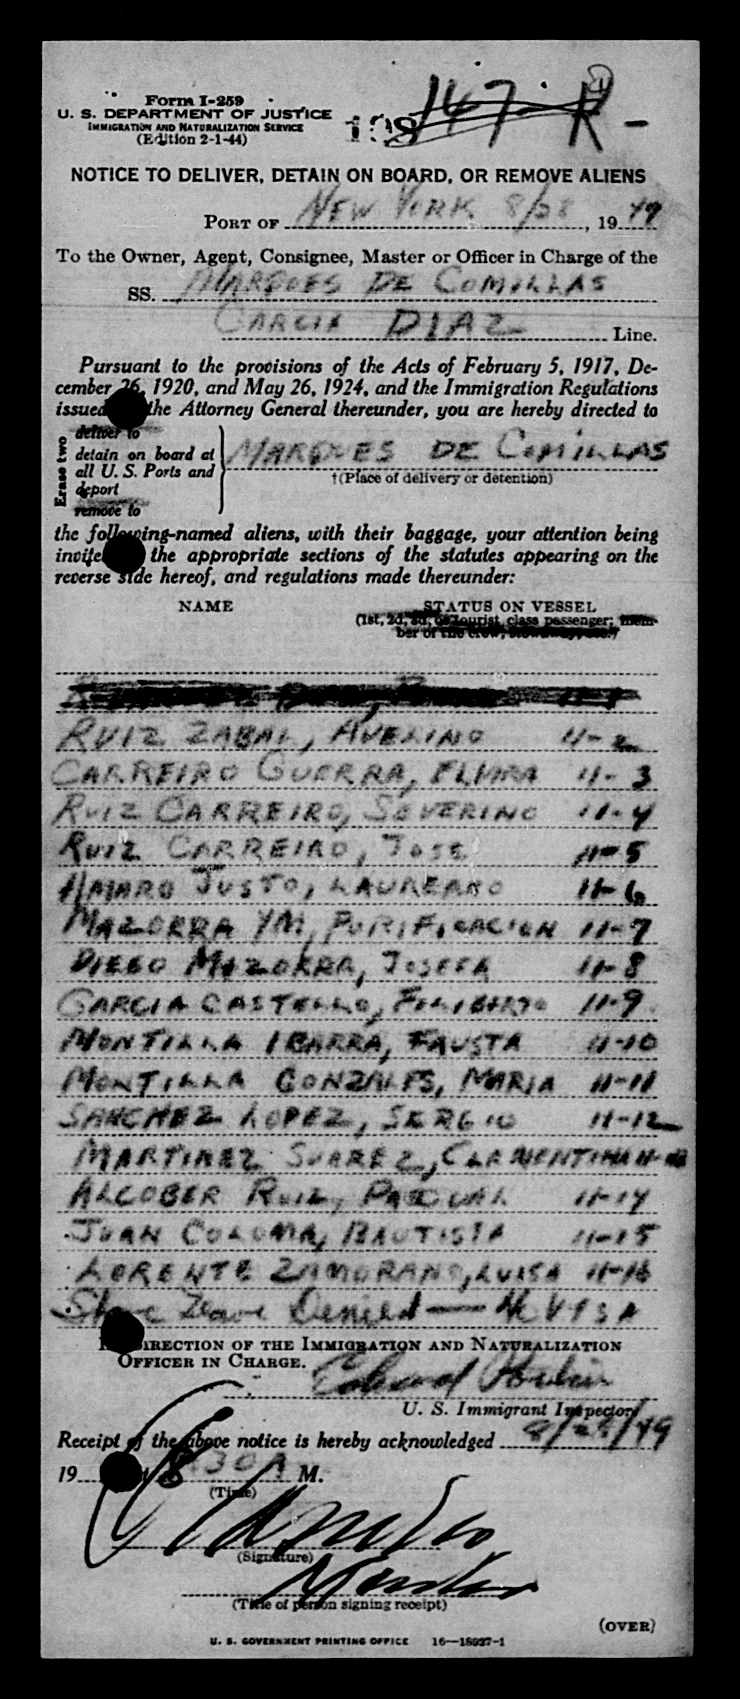 Form I-259
U. S. DEPARTMENT OF JUSTICE
IMMIGRATION AND NATURALIZATION SERVICE
(Edition 2-1-44)
147
NOTICE TO DELIVER, DETAIN ON BOARD, OR REMOVE ALIENS
PORT OF NEW YORK 8/28, 1949
To the Owner, Agent, Consignee, Master or Officer in Charge of the
SS. MARQUES DE COMILLAS
GARCIA DIAZ Line.
Pursuant to the provisions of the Acts of February 5, 1917, De-
cember 26, 1920, and May 26, 1924, and the Immigration Regulations
issued the Attorney General thereunder, you are hereby directed to
Erase two
deliver to
detain on board at
all U. S. Ports and
deport
remove to
MARQUES DE COMILLAS
†(Place of delivery or detention)
the following-named aliens, with their baggage, your attention being
invite the appropriate sections of the statutes appearing on the
reverse side hereof, and regulations made thereunder:
NAME STATUS ON VESSEL
(1st, 2d, 3d, or tourist class passenger; mem-
ber of the crew;
RUIZ ZABAL, AVELINO 11-2
CARREIRO GUERRA, ELVIRA 11-3
RUIZ CARREIRO, SEVERINO 11-4
RUIZ CARREIRO, JOSE 11-5
AMARO JUSTO, LAUREANO 11-6
MAZORRA YM, PURIFICACION 11-7
DIEGO MAZORRA, JOSEFA 11-8
GARCIA CASTELLO, FILIBERTO 11-9
MONTILLA IBARRA, FAUSTA 11-10
MONTILLA GONZALES, MARIA 11-11
SANCHEZ LOPEZ, SERGIO 11-12
MARTINEZ SUAREZ, CLEMENTINA 11-13
ALCOBER RUIZ, PASCUAL 11-14
JUAN COLOMA, BAUTISTA 11-15
LORENTE ZAMORANO, LUISA 11-16
Shore Leave Denied — No VISA
DIRECTION OF THE IMMIGRATION AND NATURALIZATION
OFFICER IN CHARGE.
Edward
U. S. Immigrant Inspector
Receipt of the above notice is hereby acknowledged 8/28/49
19 8:30 A M.
(Time)
(Signature)
(Title of person signing receipt)
(OVER)
U. S. GOVERNMENT PRINTING OFFICE 16—18027-1